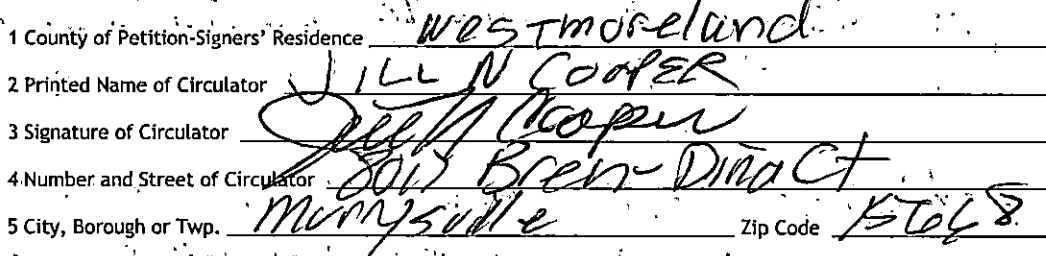 1 County of Petition-Signers' Residence Westmoreland
2 Printed Name of Circulator JILL N COOPER
3 Signature of Circulator Jill N Cooper
4 Number and Street of Circulator Bren-Dina Ct
5 City, Borough or Twp. Murrysville Zip Code